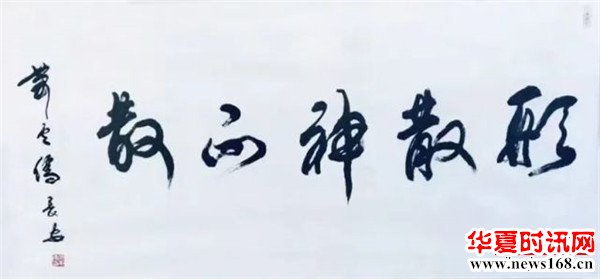 形散神不散
华夏时讯网
www.news168.cn